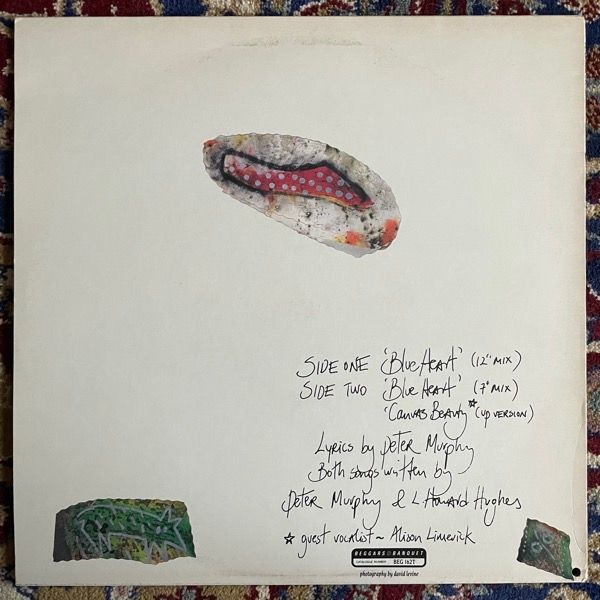 SIDE ONE 'Blue Heart' (12" MIX)
SIDE TWO 'Blue Heart' (7" MIX)
'Canvas Beauty'☆(UP VERSION)
Lyrics by Peter Murphy
Both songs written by
Peter Murphy & L Howard Hughes
☆ guest vocalist ~ Alison Limerick
BEGGARS BANQUET
CATALOGUE NUMBER BEG 162T
photography by david levine